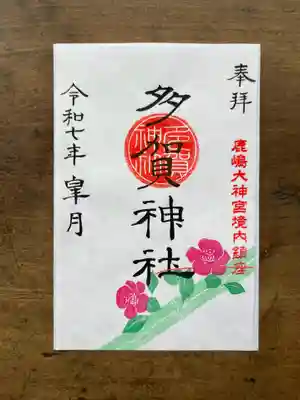 奉拝
鹿嶋大神宮境内鎮座
多賀神社
令和七年皐月